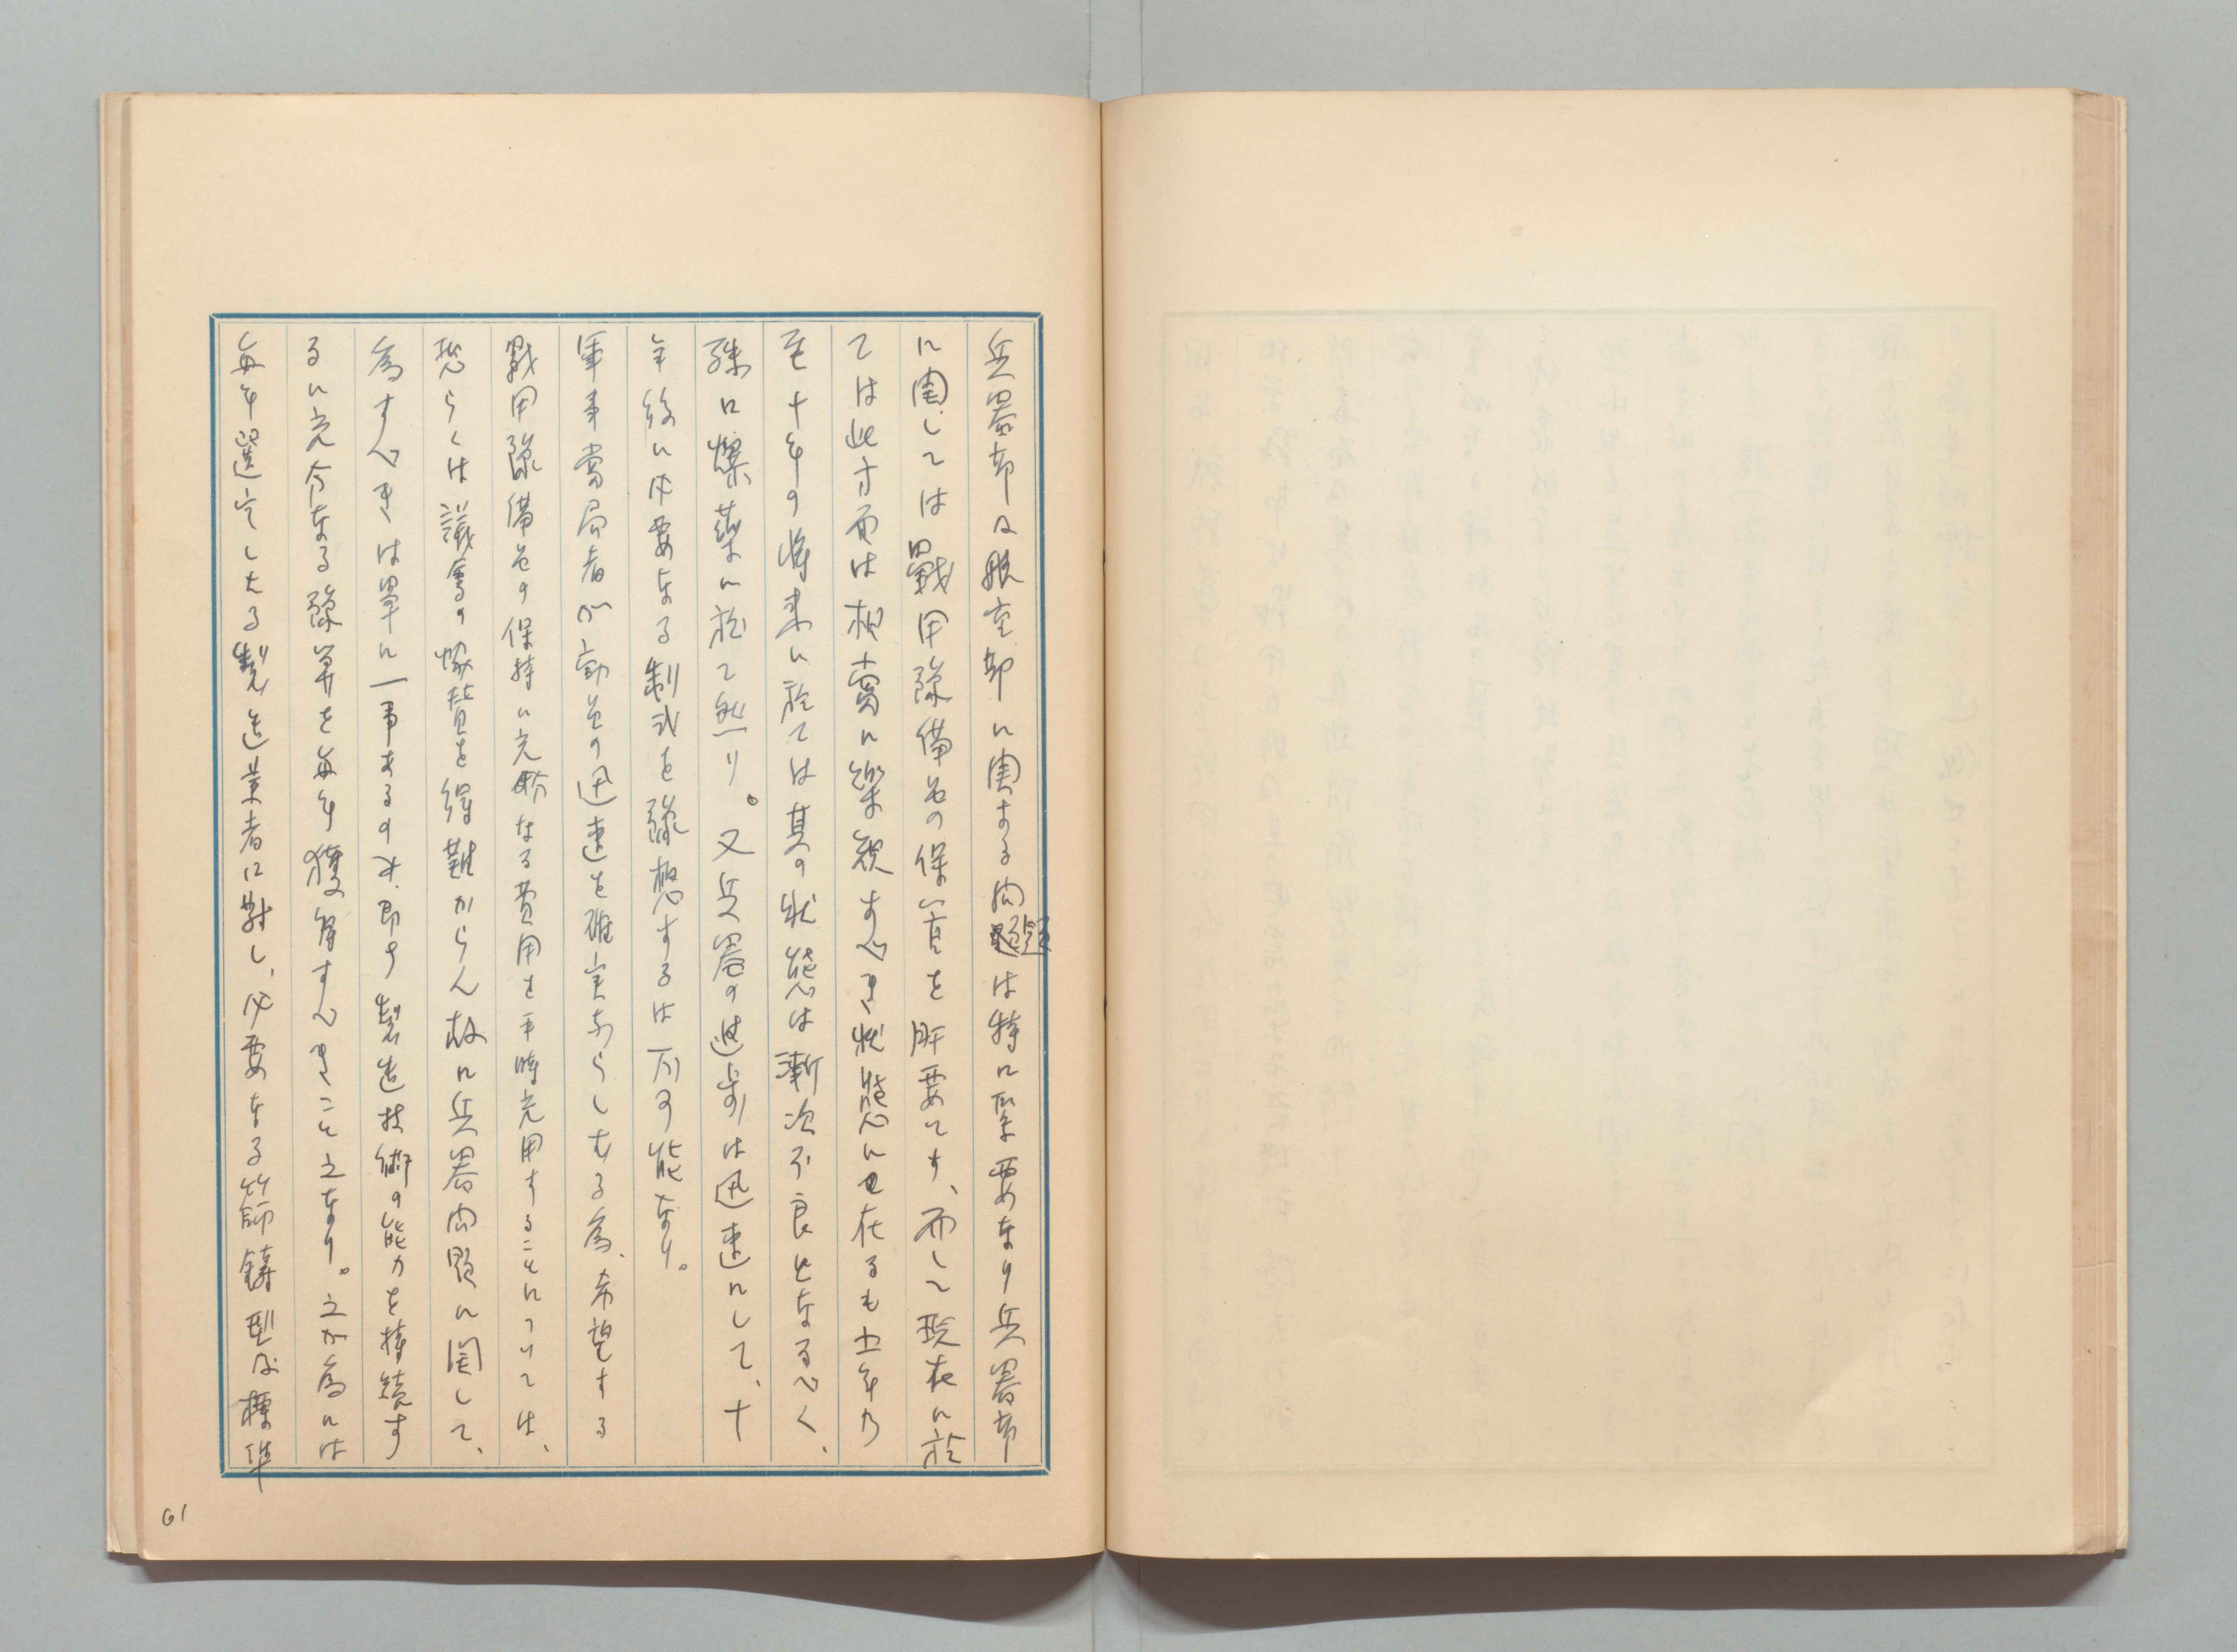 兵器部及航空部に関する問題は特に緊要なり兵器部
に関しては戰用豫備品の保育を肝要とす、而して現在に於
ては此方面は相當に樂観すべき状態に在るも五年乃
至十年の將来に於ては其の状態は漸次不良となるべく、
殊に爆藥に於て然り。又兵器の進歩は迅速にして、十
年後に必要なる制式を豫想するは不可能なり。
軍事當局者が動員の迅速を確実ならしむる為、希望する
戰用豫備品の保持に充分なる費用を平時充用することについては、
恐らくは議會の協賛を得難からん故に兵器問題に関して、
為すべきは單に一事あるのみ、即ち製造技術の能力を持續す
るに充分なる豫算を毎年獲得すべきこと之なり。之が為には
毎年選定したる製造業者に對し、必要なる 鑄型及標準
61